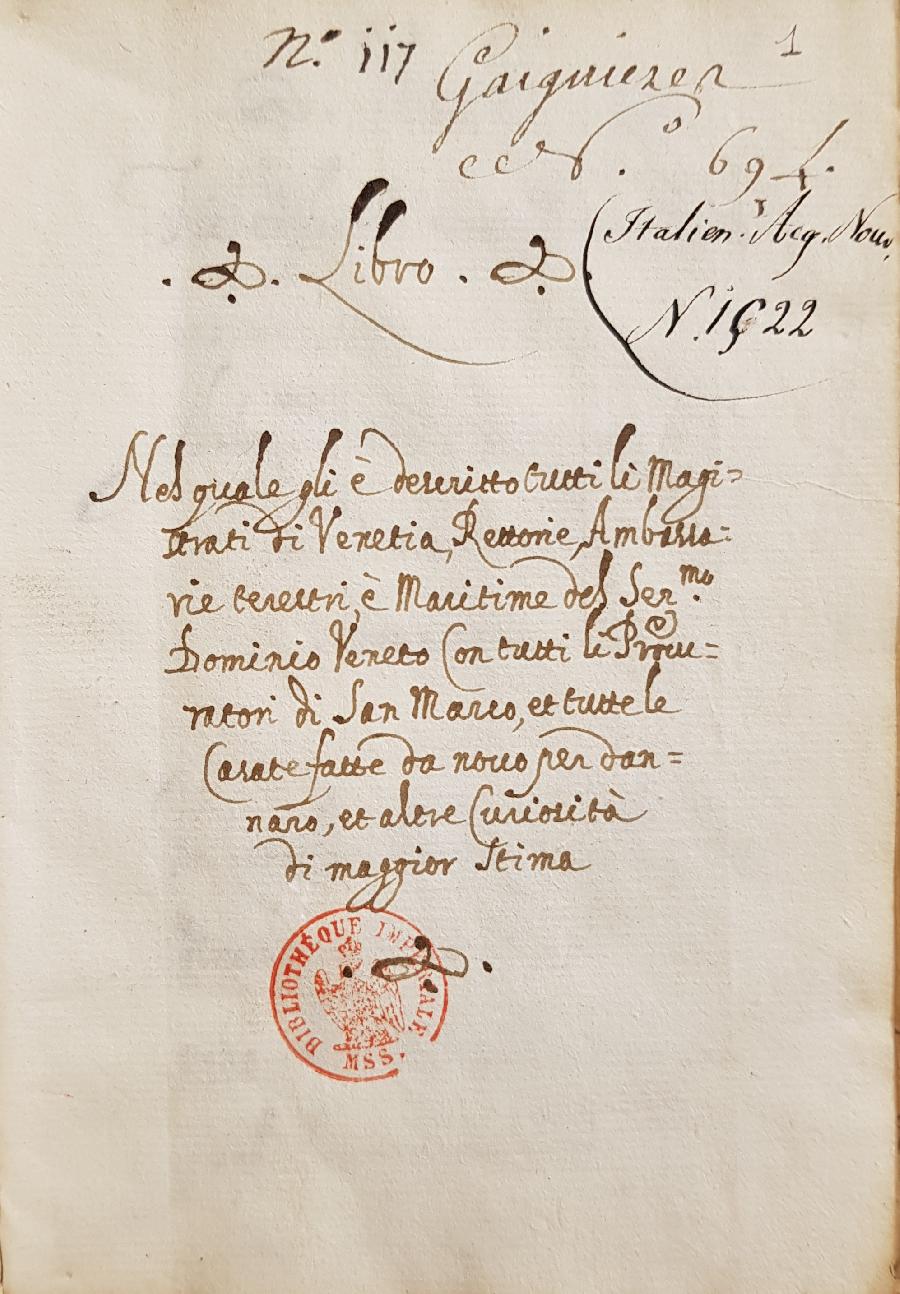 N.º 117
1
Gaignieres
N.º 694.
Libro
Italien. Reg. Nouv.
N. 1522
Nel quale gli è descritto tutti li Magi=
strati di Venetia, Rettorie, Ambassa=
rie terestri, è Maritime del Ser.mo
Dominio Veneto Con tutti li Procu=
ratori di San Marco, et tutte le
Casate fatte da novo per dan=
naro, et altre Curiosità
di maggior stima
BIBLIOTHÈQUE IMPÉRIALE
MSS.